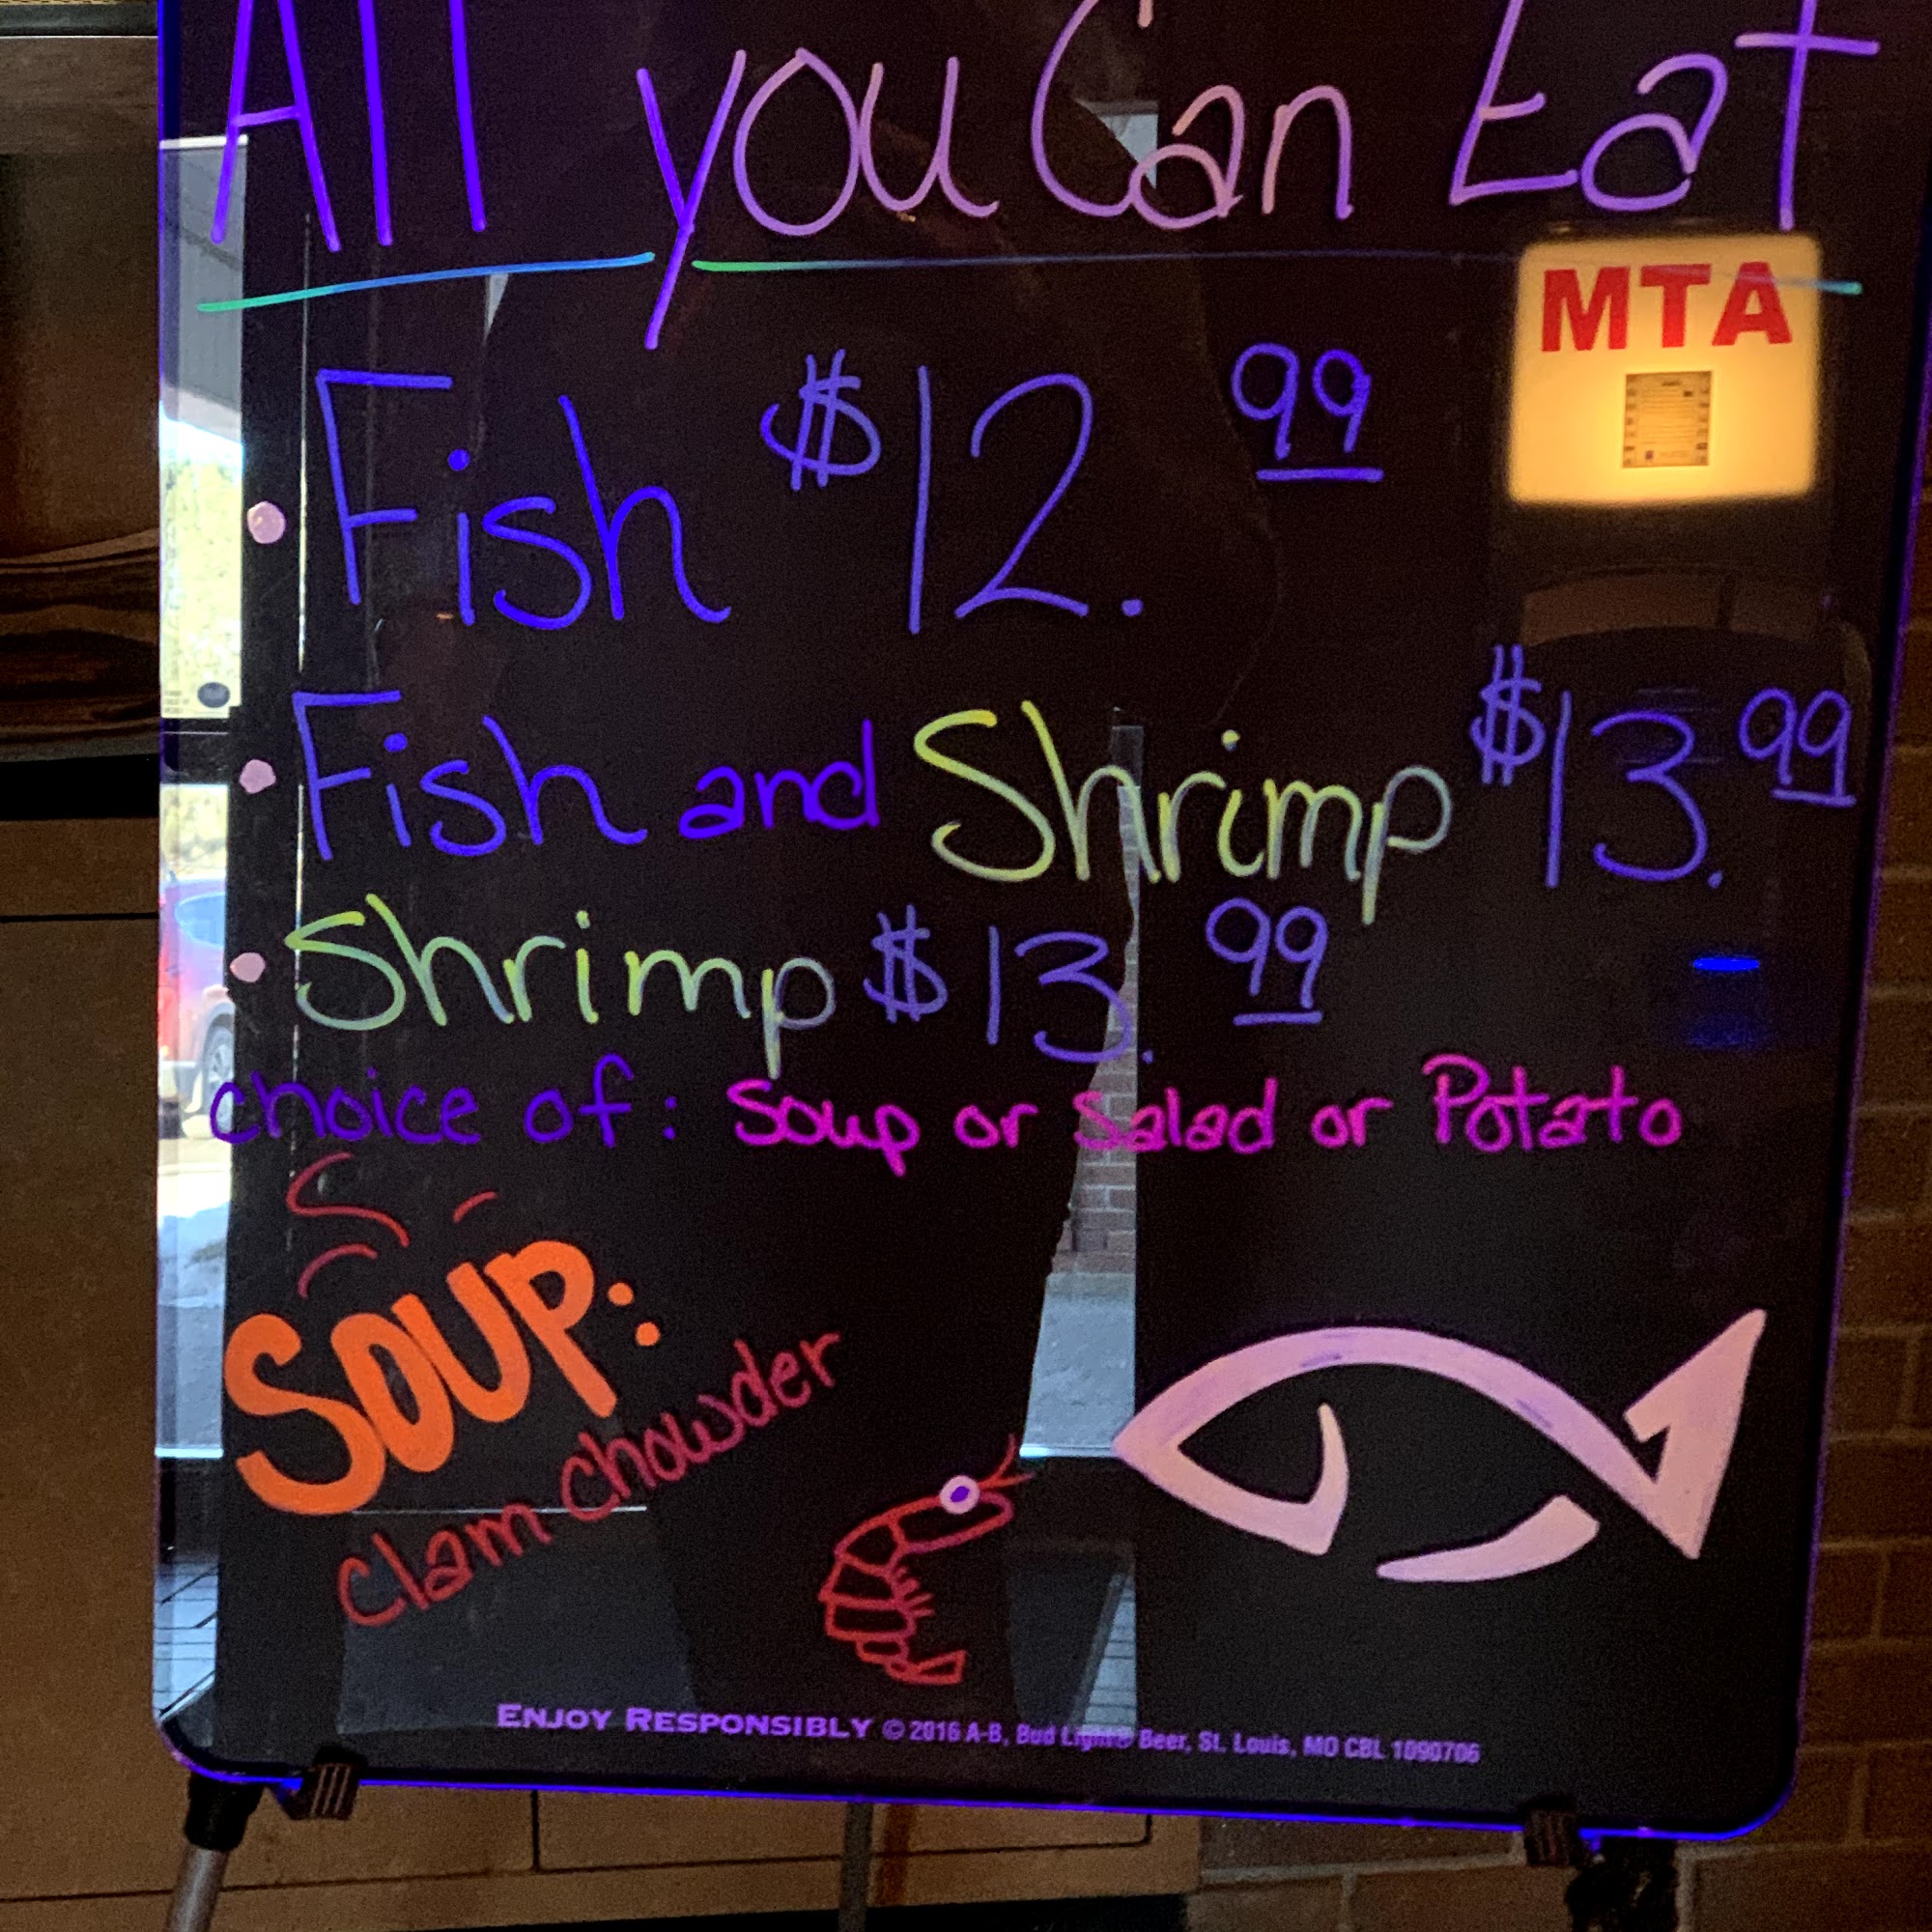 All you Can Eat
MTA
• Fish $12.99
• Fish and Shrimp $13.99
• Shrimp $13.99
choice of: Soup or Salad or Potato
SOUP:
clam chowder
ENJOY RESPONSIBLY © 2016 A-B, Bud Light® Beer, St. Louis, MO CBL 1090706